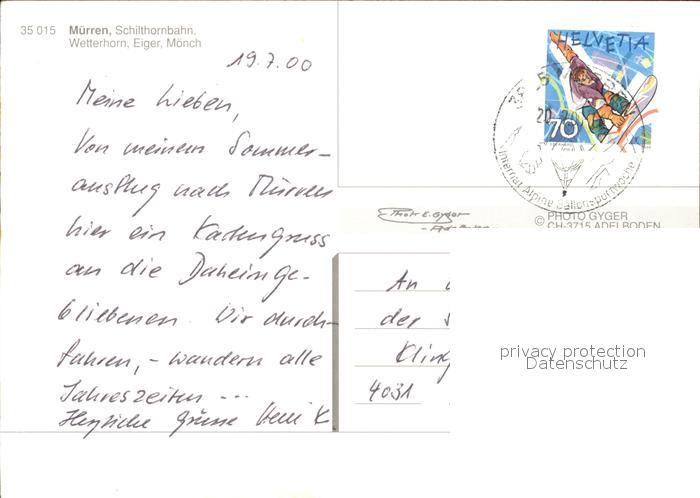 35 015 Mürren, Schilthornbahn,
Wetterhorn, Eiger, Mönch
19.7.00
Meine Lieben,
Von meinem Sommer-
ausflug nach Mürren
hier ein Kartengruss
an die Daheimge-
bliebenen. Wir durch-
fahren, - wandern alle
Jahreszeiten ---
Herzliche Grüsse
HELVETIA
70
20.
Internat. Alpine Ballonsportwoche
Photo E. Gyger
© PHOTO GYGER
CH-3715 ADELBODEN
An
der
4031
privacy protection
Datenschutz